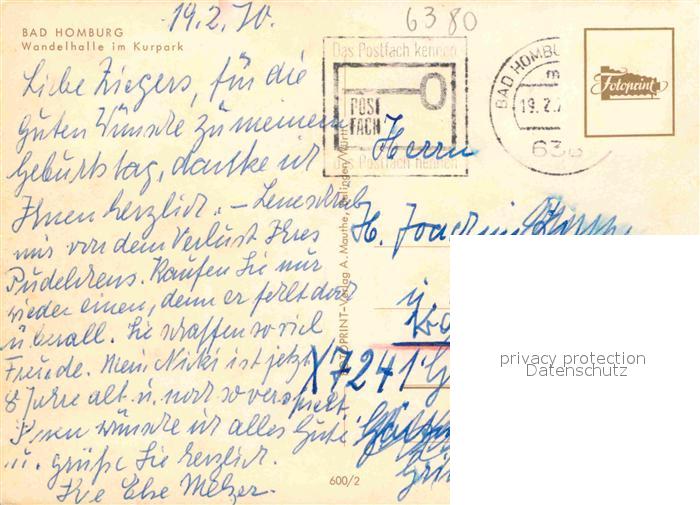 19.2.70.
6380
BAD HOMBURG
Wandelhalle im Kurpark
Das Postfach kennen
POST
FACH
das Postfach kennen
BAD HOMBU
19.2.7
638
Fotoprint
Liebe Ziegers, für die
guten Wünsche zu meinem
Geburtstag, danke ich
Ihnen herzlich. –
mir von dem Verlust Ihres
Pudelchens. Kaufen Sie nur
wieder einen, denn er fehlt doch
überall. Sie schaffen so viel
Freude. Mein Nicki ist jetzt
8 Jahre alt u. noch so verspielt.
Ihnen wünsche ich alles Gute
u. grüße Sie herzlich.
Ihre Else Melzer.
Herrn
H. Joachim
ü.
X7241
FOTOPRINT-Verlag A. Mauthe,
600/2
privacy protection
Datenschutz